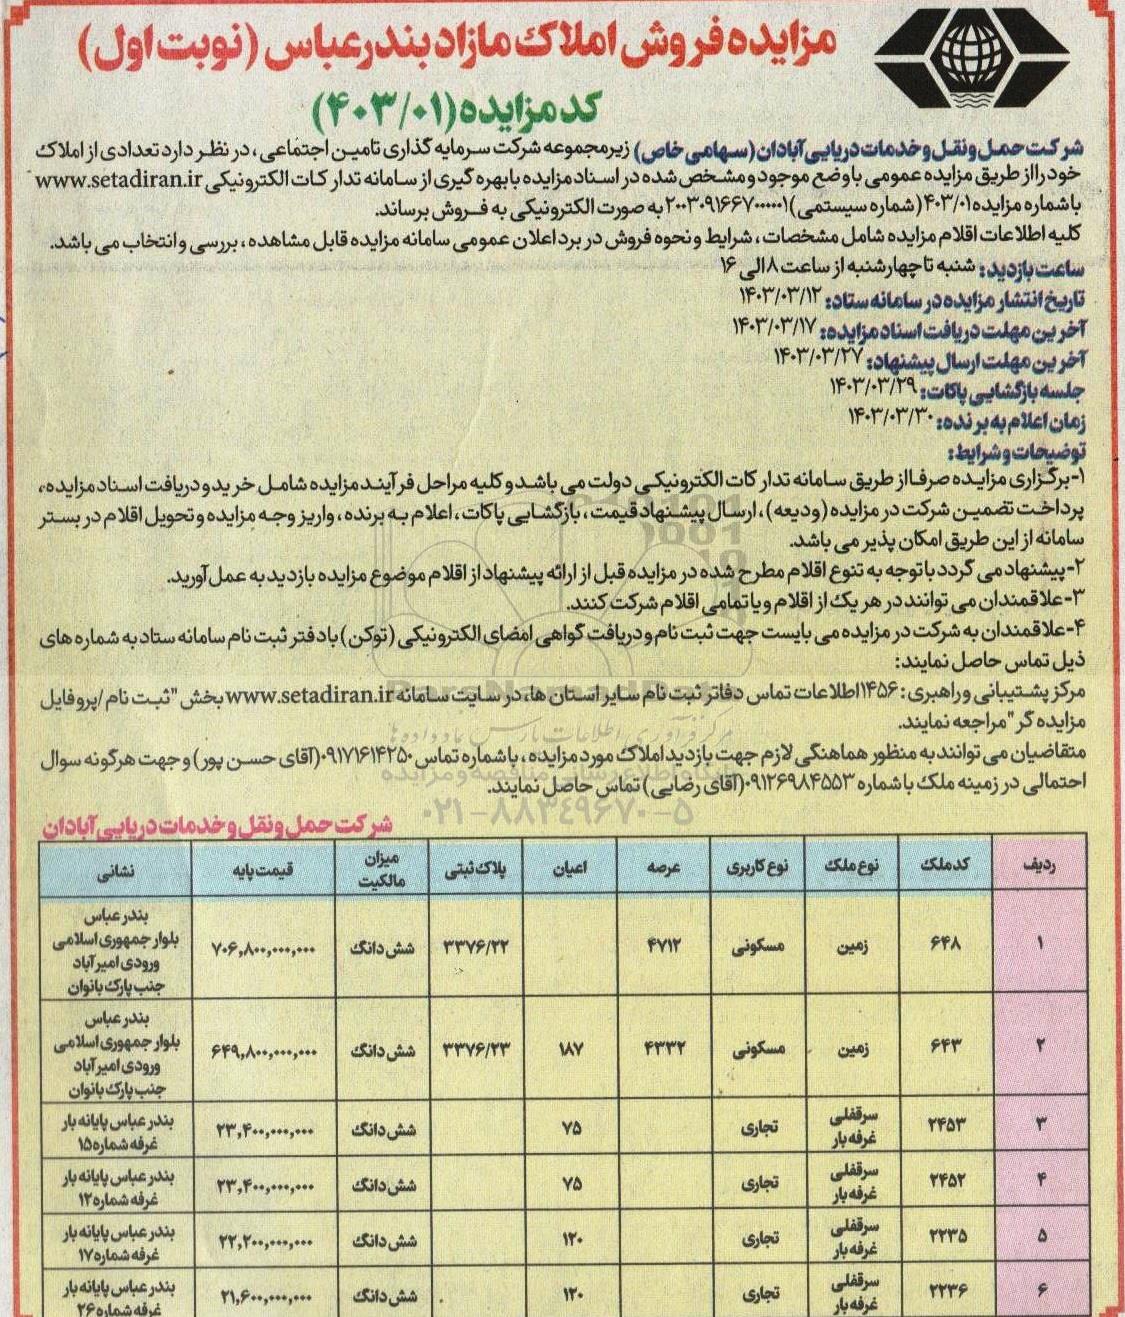 مزایده فروش املاک مازاد بندرعباس (نوبت اول)
کد مزایده (۴۰۳/۰۱)
شرکت حمل و نقل و خدمات دریایی آبادان (سهامی خاص) زیرمجموعه شرکت سرمایه گذاری تامین اجتماعی، در نظر دارد تعدادی از املاک
خود را از طریق مزایده عمومی با وضع موجود و مشخص شده در اسناد مزایده با بهره گیری از سامانه تدارکات الکترونیکی www.setadiran.ir
با شماره مزایده ۴۰۳/۰۱ (شماره سیستمی) ۲۰۰۳۰۹۱۶۶۷۰۰۰۰۰۱ به صورت الکترونیکی به فروش برساند.
کلیه اطلاعات اقلام مزایده شامل مشخصات، شرایط و نحوه فروش در برد اعلان عمومی سامانه مزایده قابل مشاهده، بررسی و انتخاب می باشد.
ساعت بازدید: شنبه تا چهارشنبه از ساعت ۸ الی ۱۶
تاریخ انتشار مزایده در سامانه ستاد: ۱۴۰۳/۰۳/۱۲
آخرین مهلت دریافت اسناد مزایده: ۱۴۰۳/۰۳/۱۷
آخرین مهلت ارسال پیشنهاد: ۱۴۰۳/۰۳/۲۷
جلسه بازگشایی پاکات: ۱۴۰۳/۰۳/۲۹
زمان اعلام به برنده: ۱۴۰۳/۰۳/۳۰
توضیحات و شرایط:
۱-برگزاری مزایده صرفا از طریق سامانه تدارکات الکترونیکی دولت می باشد و کلیه مراحل فرآیند مزایده شامل خرید و دریافت اسناد مزایده،
پرداخت تضمین شرکت در مزایده (ودیعه)، ارسال پیشنهاد قیمت، بازگشایی پاکات، اعلام به برنده، واریز وجه مزایده و تحویل اقلام در بستر
سامانه از این طریق امکان پذیر می باشد.
۲-پیشنهاد می گردد با توجه به تنوع اقلام مطرح شده در مزایده قبل از ارائه پیشنهاد از اقلام موضوع مزایده بازدید به عمل آورید.
۳-علاقمندان می توانند در هر یک از اقلام و یا تمامی اقلام شرکت کنند.
۴-علاقمندان به شرکت در مزایده می بایست جهت ثبت نام و دریافت گواهی امضای الکترونیکی (توکن) با دفتر ثبت نام سامانه ستاد به شماره های
ذیل تماس حاصل نمایند:
مرکز پشتیبانی و راهبری: ۱۴۵۶ اطلاعات تماس دفاتر ثبت نام سایر استان ها، در سایت سامانه www.setadiran.ir بخش "ثبت نام/پروفایل
مزایده گر" مراجعه نمایند.
متقاضیان می توانند به منظور هماهنگی لازم جهت بازدید املاک مورد مزایده، با شماره تماس ۰۹۱۷۱۶۱۴۲۵۰ (آقای حسن پور) و جهت هرگونه سوال
احتمالی در زمینه ملک با شماره ۰۹۱۲۶۹۸۴۵۵۳ (آقای رضایی) تماس حاصل نمایند.
۰۲۱-۸۸۳۴۹۶۷۰-۵
شرکت حمل و نقل و خدمات دریایی آبادان
ردیف کد ملک نوع ملک نوع کاربری عرصه اعیان پلاک ثبتی میزان مالکیت قیمت پایه نشانی
۱ ۶۴۸ زمین مسکونی ۴۷۱۲ ۳۳۷۶/۲۲ شش دانگ ۷۰۶,۸۰۰,۰۰۰,۰۰۰ بندر عباس
بلوار جمهوری اسلامی
ورودی امیرآباد
جنب پارک بانوان
۲ ۶۴۳ زمین مسکونی ۴۳۳۲ ۱۸۷ ۳۳۷۶/۲۳ شش دانگ ۶۴۹,۸۰۰,۰۰۰,۰۰۰ بندر عباس
بلوار جمهوری اسلامی
ورودی امیرآباد
جنب پارک بانوان
۳ ۲۴۵۳ سرقفلی غرفه بار تجاری ۷۵ شش دانگ ۲۳,۴۰۰,۰۰۰,۰۰۰ بندر عباس پایانه بار
غرفه شماره ۱۵
۴ ۲۴۵۲ سرقفلی غرفه بار تجاری ۷۵ شش دانگ ۲۳,۴۰۰,۰۰۰,۰۰۰ بندر عباس پایانه بار
غرفه شماره ۱۲
۵ ۲۲۳۵ سرقفلی غرفه بار تجاری ۱۲۰ شش دانگ ۲۲,۲۰۰,۰۰۰,۰۰۰ بندر عباس پایانه بار
غرفه شماره ۱۷
۶ ۲۲۳۶ سرقفلی غرفه بار تجاری ۱۲۰ شش دانگ ۲۱,۶۰۰,۰۰۰,۰۰۰ بندر عباس پایانه بار
غرفه شماره ۲۶